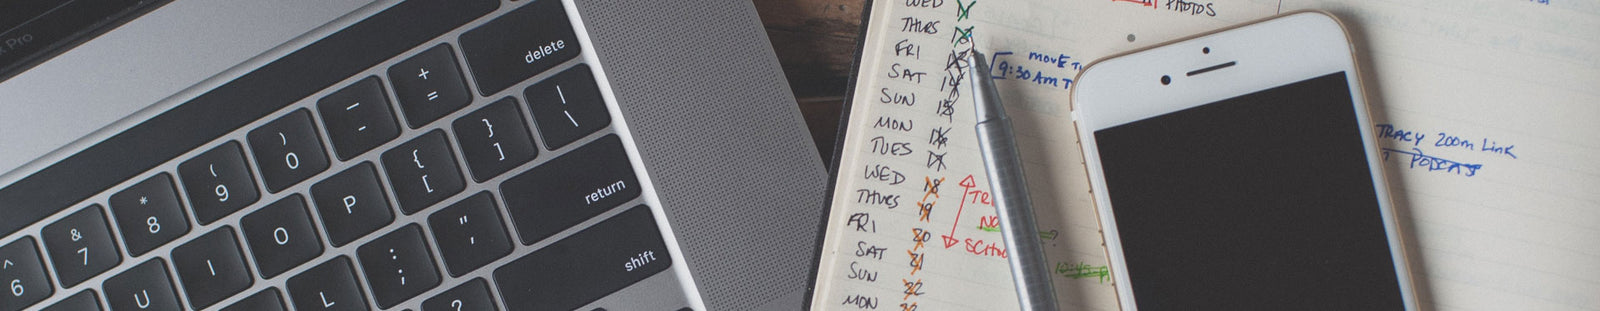 Pro
delete
+
=
—
-
)
0
(
9
*
8
&
7
^
6
|
\
}
]
{
[
P
O
I
U
return
"
'
:
;
L
shift
?
WED 11
PHOTOS
THURS 12
FRI 13
MOVE
9:30 AM
SAT 14
SUN 15
MON 16
TUES 17
TRACY ZOOM LINK
PODCAST
WED 18
THURS 19
FRI 20
SAT 21
SUN 22
MON 23